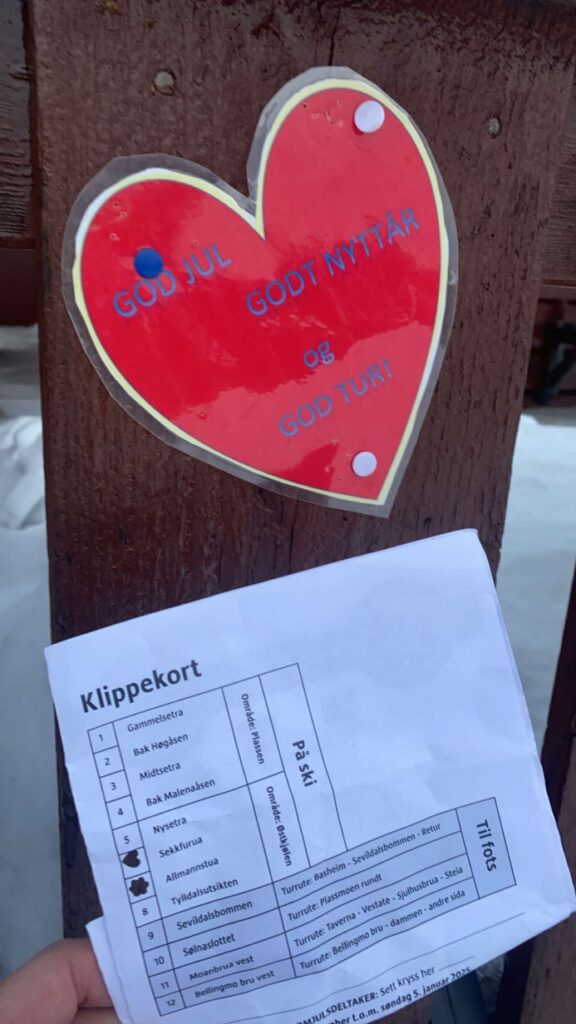 GOD JUL
GODT NYTTÅR
og
GOD TUR!
Klippekort
1 Gammelsetra
2 Bak Høgåsen
3 Midtsetra
4 Bak Malenaåsen
Område: Plassen
På ski
5 Nysetra
Sekkfurua
Allmannstua
8 Tylldalsutsikten
Område: Østkjølen
9 Sevildalsbommen Turrute: Basheim - Sevildalsbommen - Retur
10 Sølnaslottet Turrute: Plassmoen rundt
11 Moanbrua vest Turrute: Taverna - Vestate - Sjulhusbrua - Steia
12 Bellingmo bru vest Turrute: Bellingmo bru - dammen - andre sida
Til fots
OMJULSDELTAKER: Sett kryss her
mber t.o.m. søndag 5. januar 2025